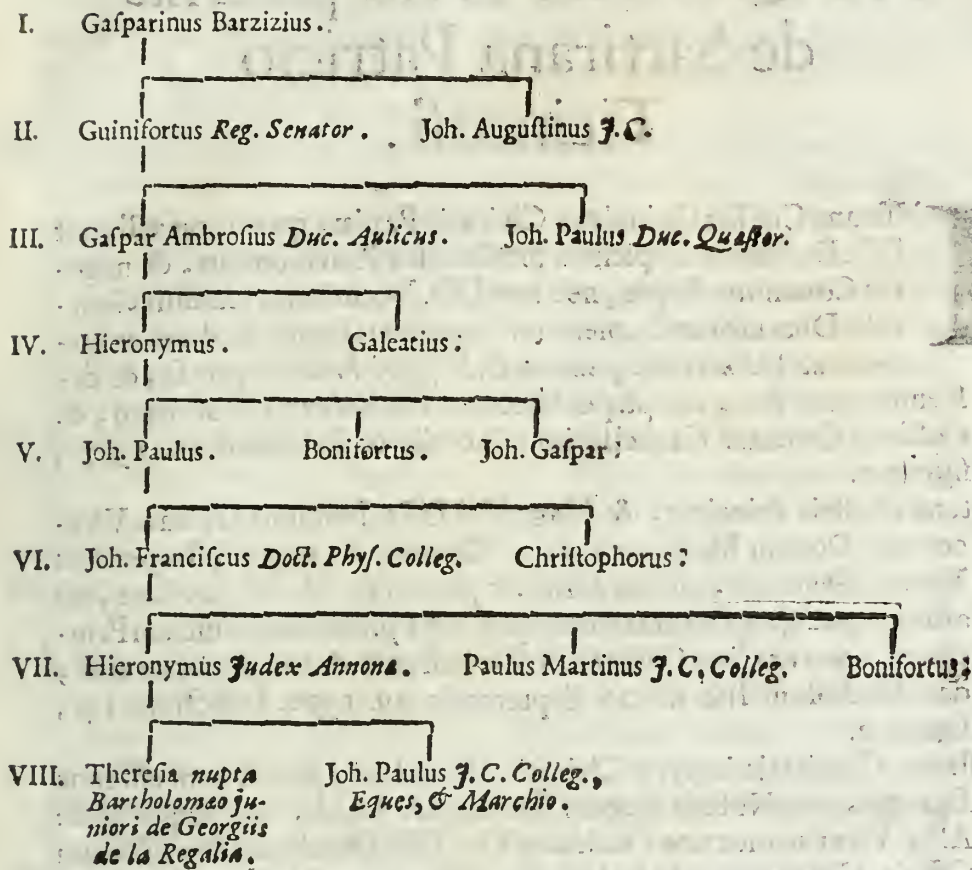 I. Gaſparinus Barzizius.
II. Guinifortus Reg. Senator. Joh. Auguſtinus J.C.
III. Gaſpar Ambroſius Duc. Aulicus. Joh. Paulus Duc. Quæſtor.
IV. Hieronymus. Galeatius:
V. Joh. Paulus. Bonifortus. Joh. Gaſpar:
VI. Joh. Franciſcus Doct. Phyſ. Colleg. Chriſtophorus:
VII. Hieronymus Judex Annonæ. Paulus Martinus J.C. Colleg. Bonifortus;
VIII. Thereſia nupta Joh. Paulus J.C. Colleg.,
Bartholomæo ju- Eques, & Marchio.
niori de Georgiis
de la Regalia.